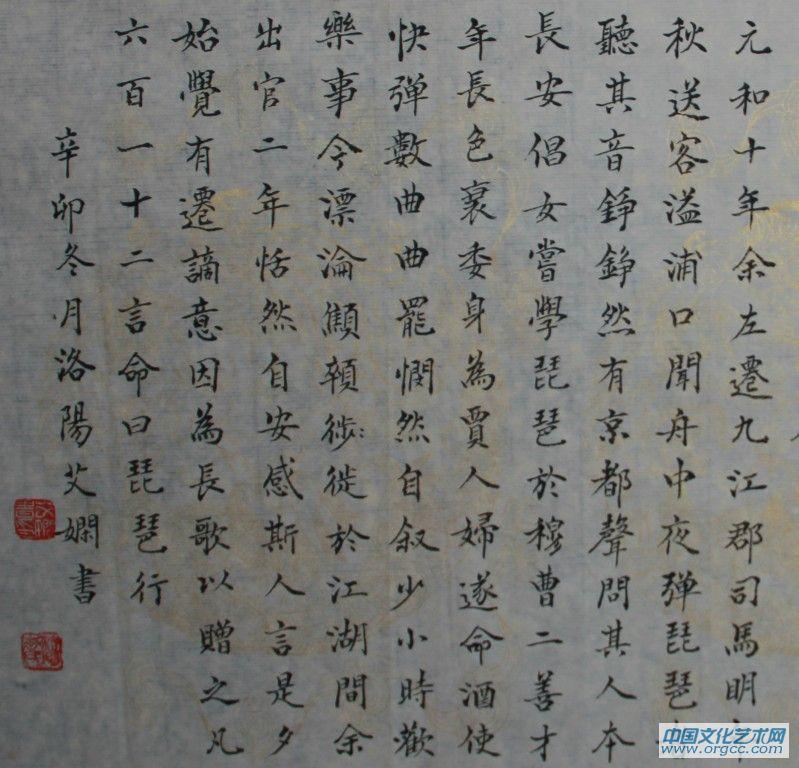 元和十年余左遷九江郡司馬明
秋送客溢浦口聞舟中夜弹琵琶
聽其音錚錚然有京都聲問其人本
長安倡女嘗學琵琶於穆曹二善才
年長色衰委身為賈人婦遂命酒使
快弹數曲曲罷憫然自叙少小時歡
樂事今漂淪顦頓徙於江湖間余
出官二年恬然自安感斯人言是夕
始覺有遷謫意因為長歌以贈之凡
六百一十二言命曰琵琶行
辛卯冬月洛陽艾嫻書
中国文化艺术网
www.orgcc.com